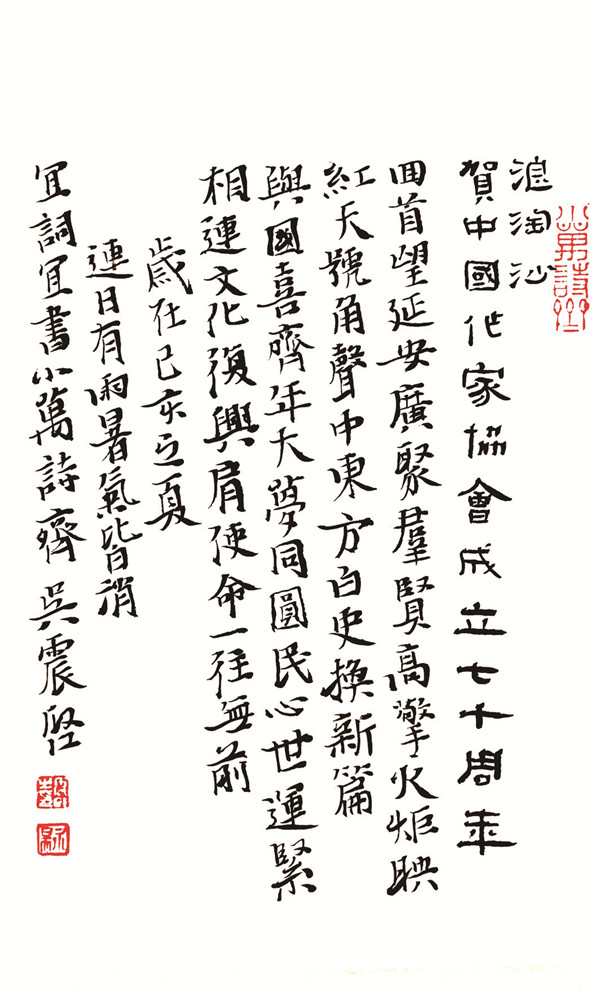 浪淘沙
賀中國作家協會成立七十周年
回首望延安廣聚羣賢高擎火炬映
紅天號角聲中東方白史換新篇
與國喜齊年大夢同圓民心世運緊
相連文化復興肩使命一往無前
歲在己亥之夏
連日有雨暑氣皆消
宜詞宜書小萬詩齋 吳震啟